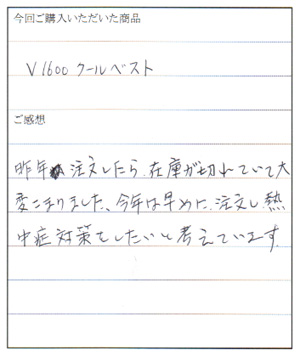 今回ご購入いただいた商品
V1600 クールベスト
ご感想
昨年注文したら、在庫が切れていて大
変こまりました、今年は早めに、注文し熱
中症対策をしたいと考えています